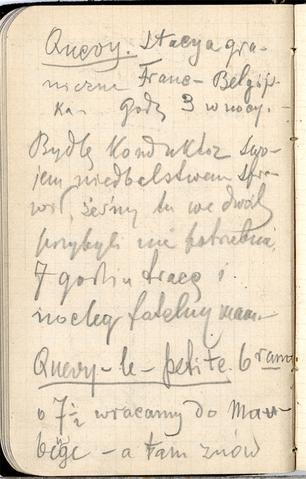 Quévy. Stacya gra-
niczna Franc-Belgijs-
ka. godz 3 w nocy.
Bydlę Konduktor swo-
jem niedbalstwem spra-
wił, żeśmy tu we dwóch
przybyli nie potrzebnie,
7 godzin tracę i
nocleg fatalny mam.
Quevy-le-petite. 6 rano
o 7 1/2 wracamy do Mau-
beuge - a tam znów